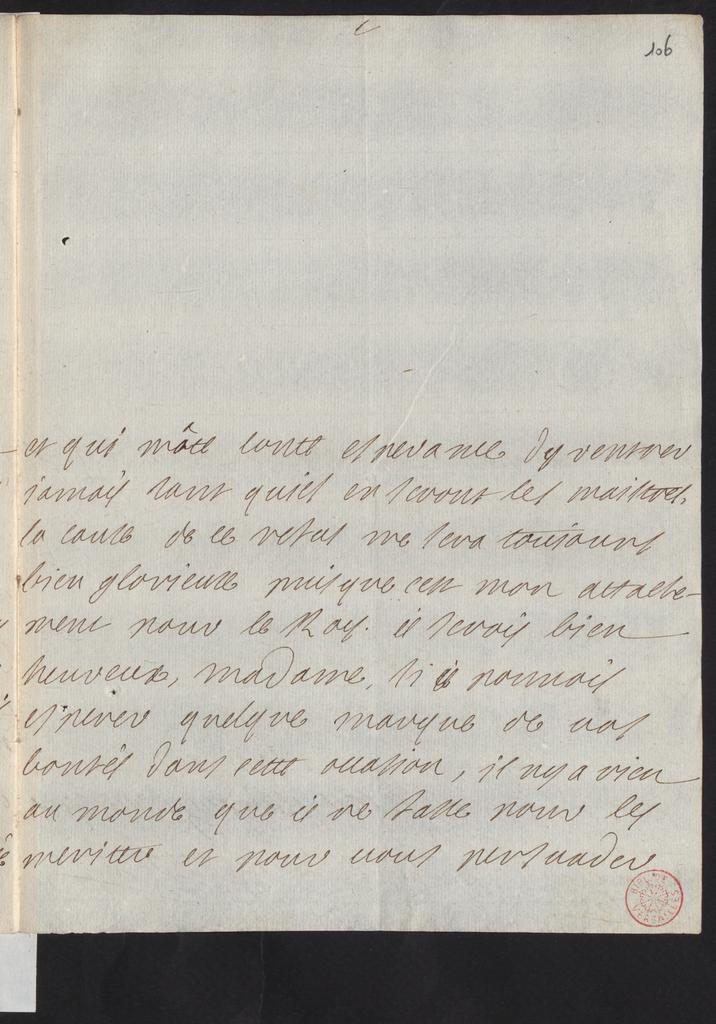 106
et qui m'ôte toute esperance dy rentrer
jamais tant quils en seront les maistres.
la cause de ce refus me sera tousiours
bien glorieuse puisque cest mon attache-
ment pour le Roy. ie serois bien
heureux, madame, si ie pouuois
esperer quelque marque de vos
bontés dans cette ocassion, il ny a rien
au monde que ie ne fasse pour les
meritter et pour vous persuader
BIBL. DE VERSAILLES